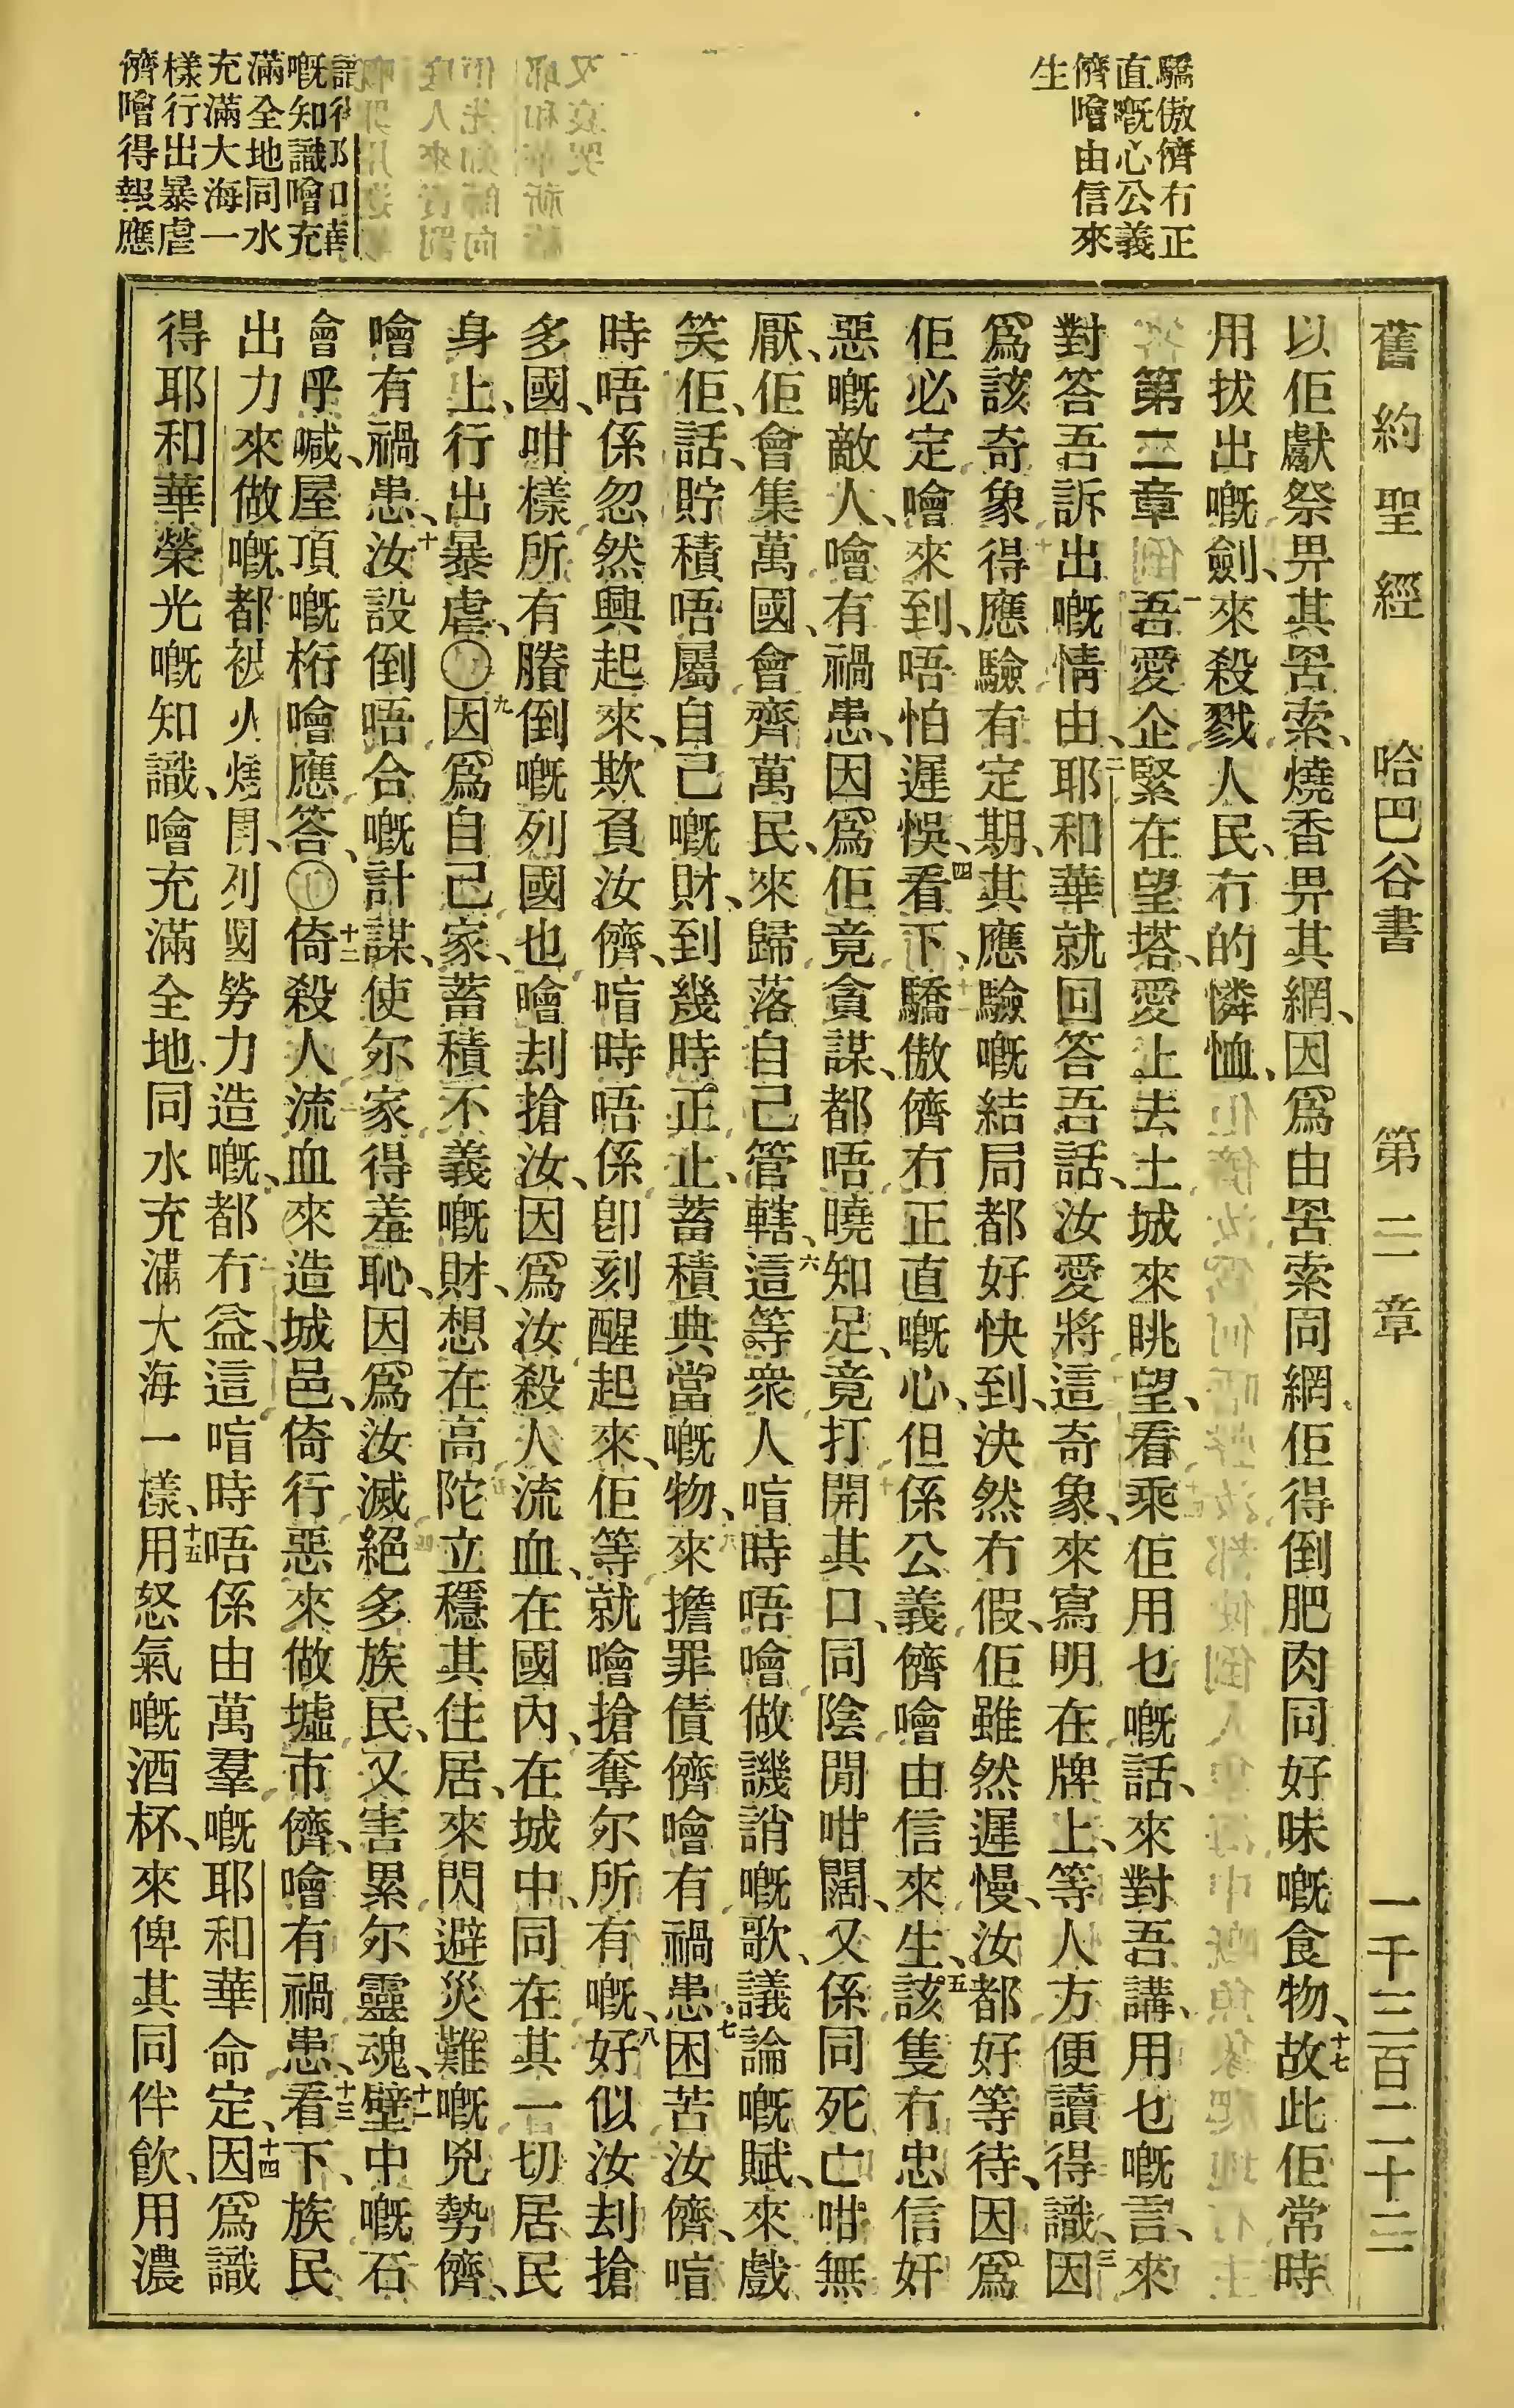 驕傲儕冇正
直嘅心公義
儕噲由信來
生
嘅知識噲充
滿全地同水
充滿大海一
樣行出暴虐
儕噲得報應
舊約聖經 哈巴谷書 第二章 一千三百二十三
以佢獻祭畀其罟索、燒香畀其網、因爲由罟索同網、佢得倒肥肉同好味嘅食物、十七故此佢常時
用拔出嘅劍、來殺戮人民、冇的憐恤、
第二章 一吾愛企緊在望塔、愛上去土城來眺望、看乘佢用乜嘅話、來對吾講、用乜嘅言、來
對答吾訴出嘅情由、二耶和華就回答吾話、汝愛將這奇象、來寫明在牌上、等人方便讀得識、三因
爲該奇象得應驗有定期、其應驗嘅結局都好快到、決然冇假、佢雖然遲慢、汝都好等待、因爲
佢必定噲來到、唔怕遲悞、四看下、驕傲儕冇正直嘅心、但係公義儕噲由信來生、五該隻冇忠信奸
惡嘅敵人、噲有禍患、因爲佢竟貪謀、都唔曉知足、竟打開其口、同陰間咁闊、又係同死亡咁無
厭、佢會集萬國、會齊萬民、來歸落自己管轄、六這等衆人、唁時唔噲做譏誚嘅歌、議論嘅賦、來戲
笑佢、話、貯積唔屬自己嘅財、到幾時正止、蓄積典當嘅物、來擔罪債儕、噲有禍患、七困苦汝儕、唁
時唔係忽然興起來、欺負汝儕、唁時唔係卽刻醒起來、佢等就噲搶奪尔所有嘅、八好似汝刦搶
多國、咁樣所有賸倒嘅列國也噲刦搶汝、因爲汝殺人流血、在國內、在城中、同在其一切居民
身上、行出暴虐、〇九因爲自己家、蓄積不義嘅財、想在高陀立穩其住居、來閃避災難嘅兇勢儕、
噲有禍患、十汝設倒唔合嘅計謀、使尔家得羞恥、因爲汝滅絕多族民、又害累尔靈魂、十一壁中嘅石
會呼喊、屋頂嘅桁噲應答、〇十二倚殺人流血來造城邑、倚行惡來做墟市儕、噲有禍患、十三看下、族民
出力來做嘅、都被火燒、列國勞力造嘅、都冇益、這唁時唔係由萬羣嘅耶和華命定、十四因爲識
得耶和華榮光嘅知識、噲充滿全地、同水充滿大海一樣、十五用怒氣嘅酒杯、來俾其同伴飮、用濃